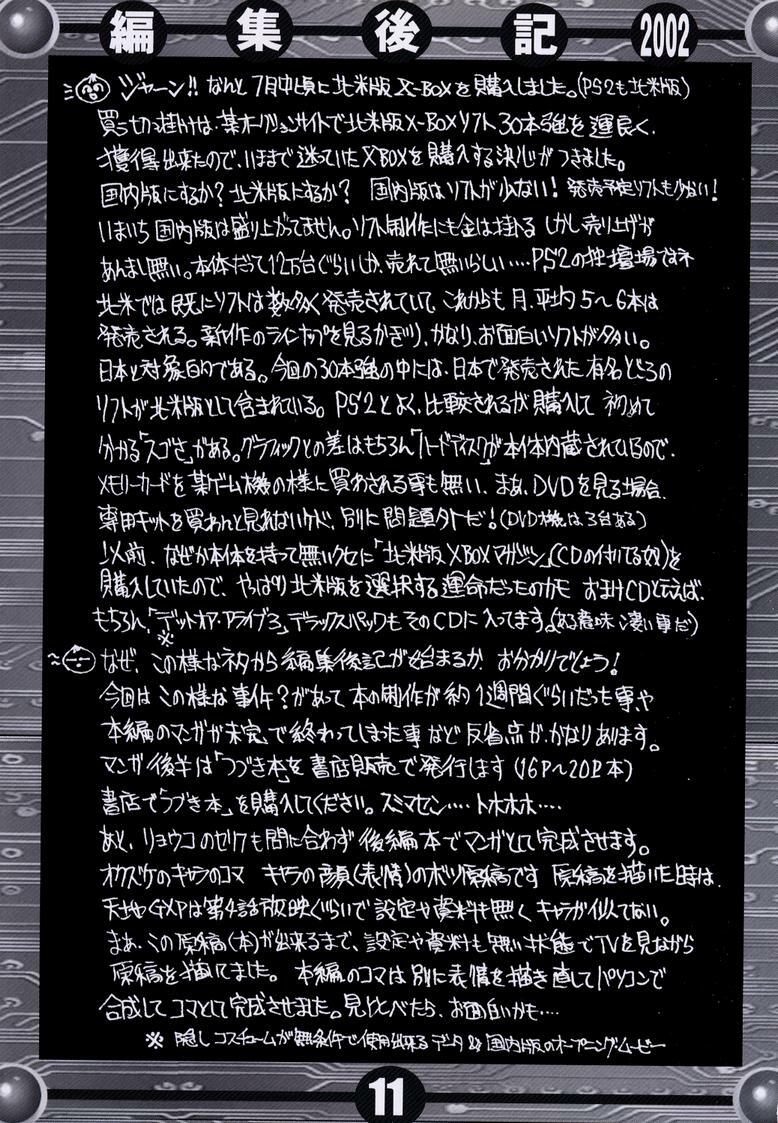 編集後記 2002
ジャーン!! なんと 7月中頃に北米版 X-BOXを購入しました。(PS2も北米版)
買う切っ掛けは、某オークションサイトで北米版X-BOXソフト30本強を運良く、
獲得出来たので、いままで迷っていたXBOXを購入する決心がつきました。
国内版にするか? 北米版にするか? 国内版はソフトが少ない! 発売予定ソフトも少ない!
いまいち国内版は盛り上がってません。ソフト制作にも金は掛る しかし売り上げが
あんまし無い。本体だって12万台ぐらいしか、売れて無いらしい‥‥PS2の独壇場ですネ
北米では既にソフトは数多く発売されていて、これからも月、平均5〜6本は
発売される。新作のラインナップを見るかぎり、かなり、お面白いソフトが多い。
日本と対象的である。今回の30本強の中には、日本で発売された有名どころの
ソフトが北米版として含まれている。PS2とよく、比較されるが購入して 初めて
分かる「スゴさ」がある。グラフィックとの差はもちろん「ハードディスク」が本体内蔵されているので、
メモリーカードを某ゲーム機の様に買わされる事も無い、まあ、DVDを見る場合、
専用キットを買わんと見れないケド、別に問題外だ!(DVD機は3台ある)
以前、なぜか本体を持って無いクセに「北米版XBOXマガジン」(CDの付いてる奴)を
購入していたので、やっぱり北米版を選択する運命だったのかモ おまけCDと言えば、
もちろん、「デッドオア・アライブ3」デラックスパックもそのCDに入ってます。(ある意味凄い事だ)
※
なぜ、この様なネタから編集後記が始まるか お分かりでしょう!
今回はこの様な事件?があって本の制作が約1週間ぐらいだった事や
本編のマンガが未完、で終わってしまった事など 反省点が、かなりあります。
マンガ後半は「つづき本」を書店販売で発行します(16P〜20P本)
書店で「つづき本」を購入してください。スミマセン‥‥トホホホ‥‥
あと、リョウコのゼクも間に合わず 後編本でマンガとして完成させます。
オクズケのキャラのコマ キャラの顔(表情)のボツ原稿です 原稿を描いた時は、
天地GXPは第4話放映ぐらいで設定や資料も無く キャラが似てない。
まあ、この原稿(本)が出来るまで、設定や資料も無い状態でTVを見ながら
原稿を描いてました。 本編のコマは別に表情を描き直してパソコンで
合成してコマとして完成させました。見比べたら、お面白いかも‥‥
※ 隠しコスチュームが無条件で使用出来るデータ&国内版のオープニング・ムービー
11